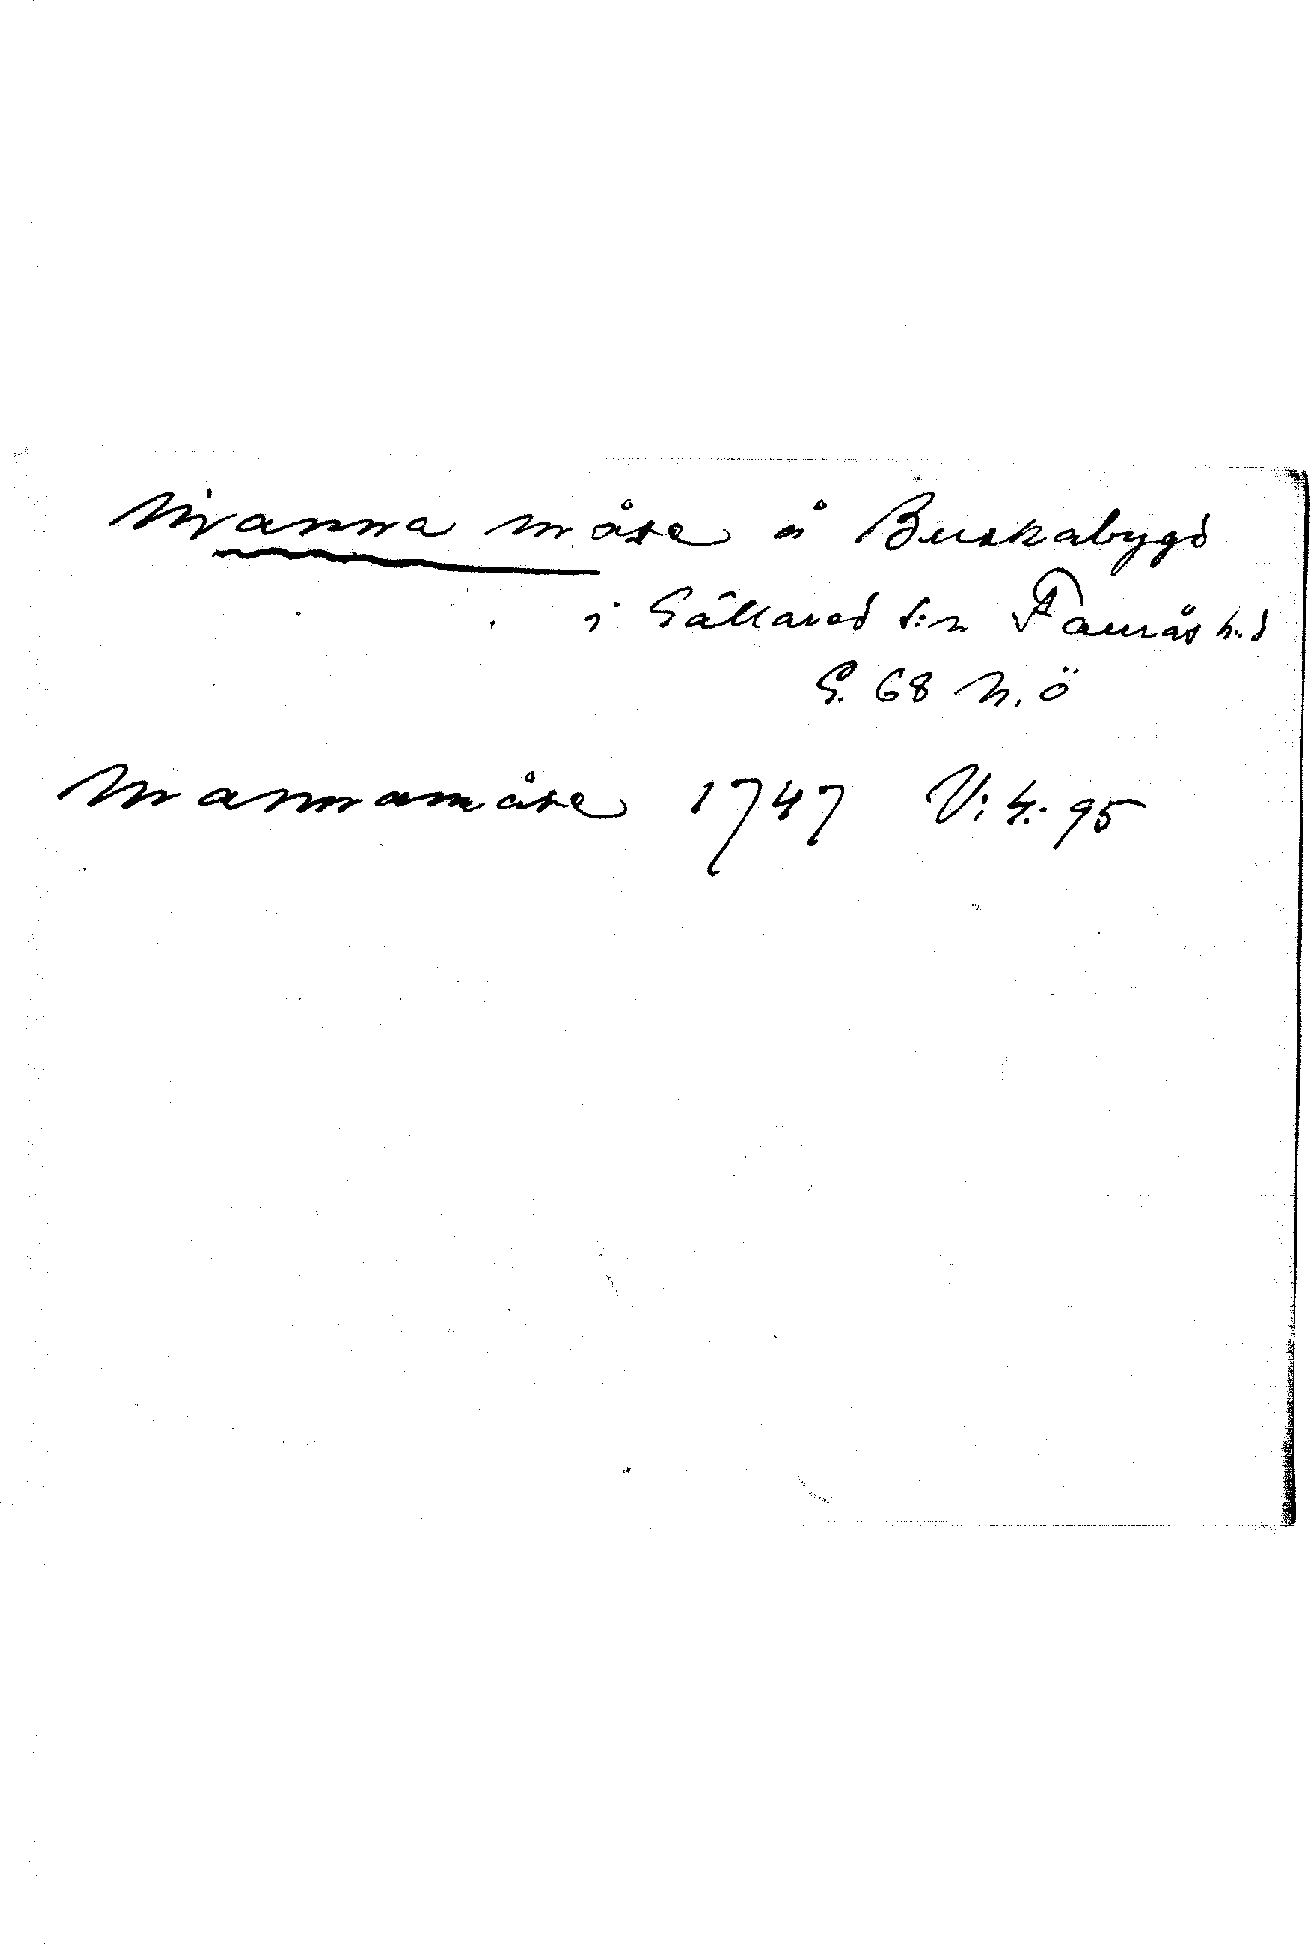 Manna måse å Buskabygd
i Gällared s:n Faurås h.d
G. 68 N. ö
Mannamåse 1747 V: 4: 95